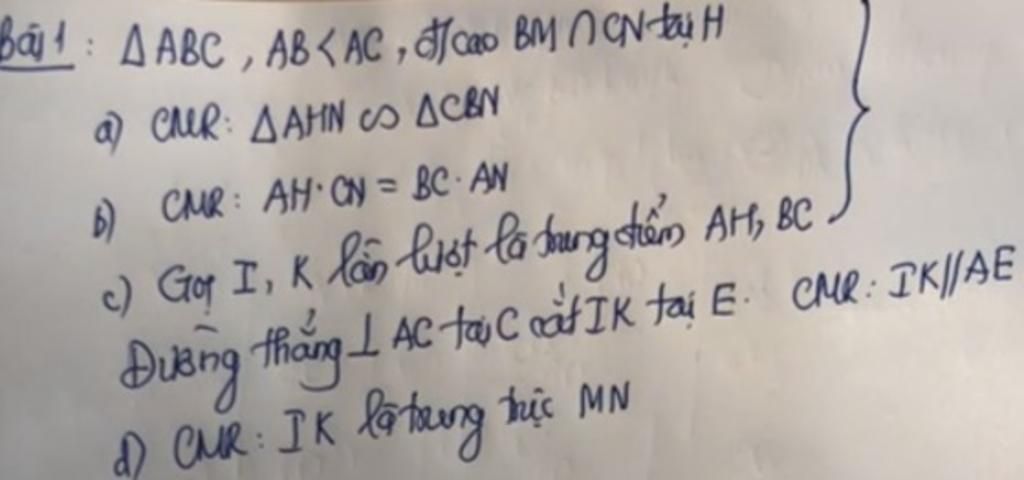 Bài 1: ΔABC, AB<AC, đ/cao BM∩CN tại H
a) CMR: ΔAHN ∽ ΔCBN
b) CMR: AH·CN = BC·AN
c) Gọi I, K lần lượt là trung điểm AH, BC
Đường thẳng ⊥ AC tại C cắt IK tại E. CMR: IK//AE
d) CMR: IK là trung trực MN